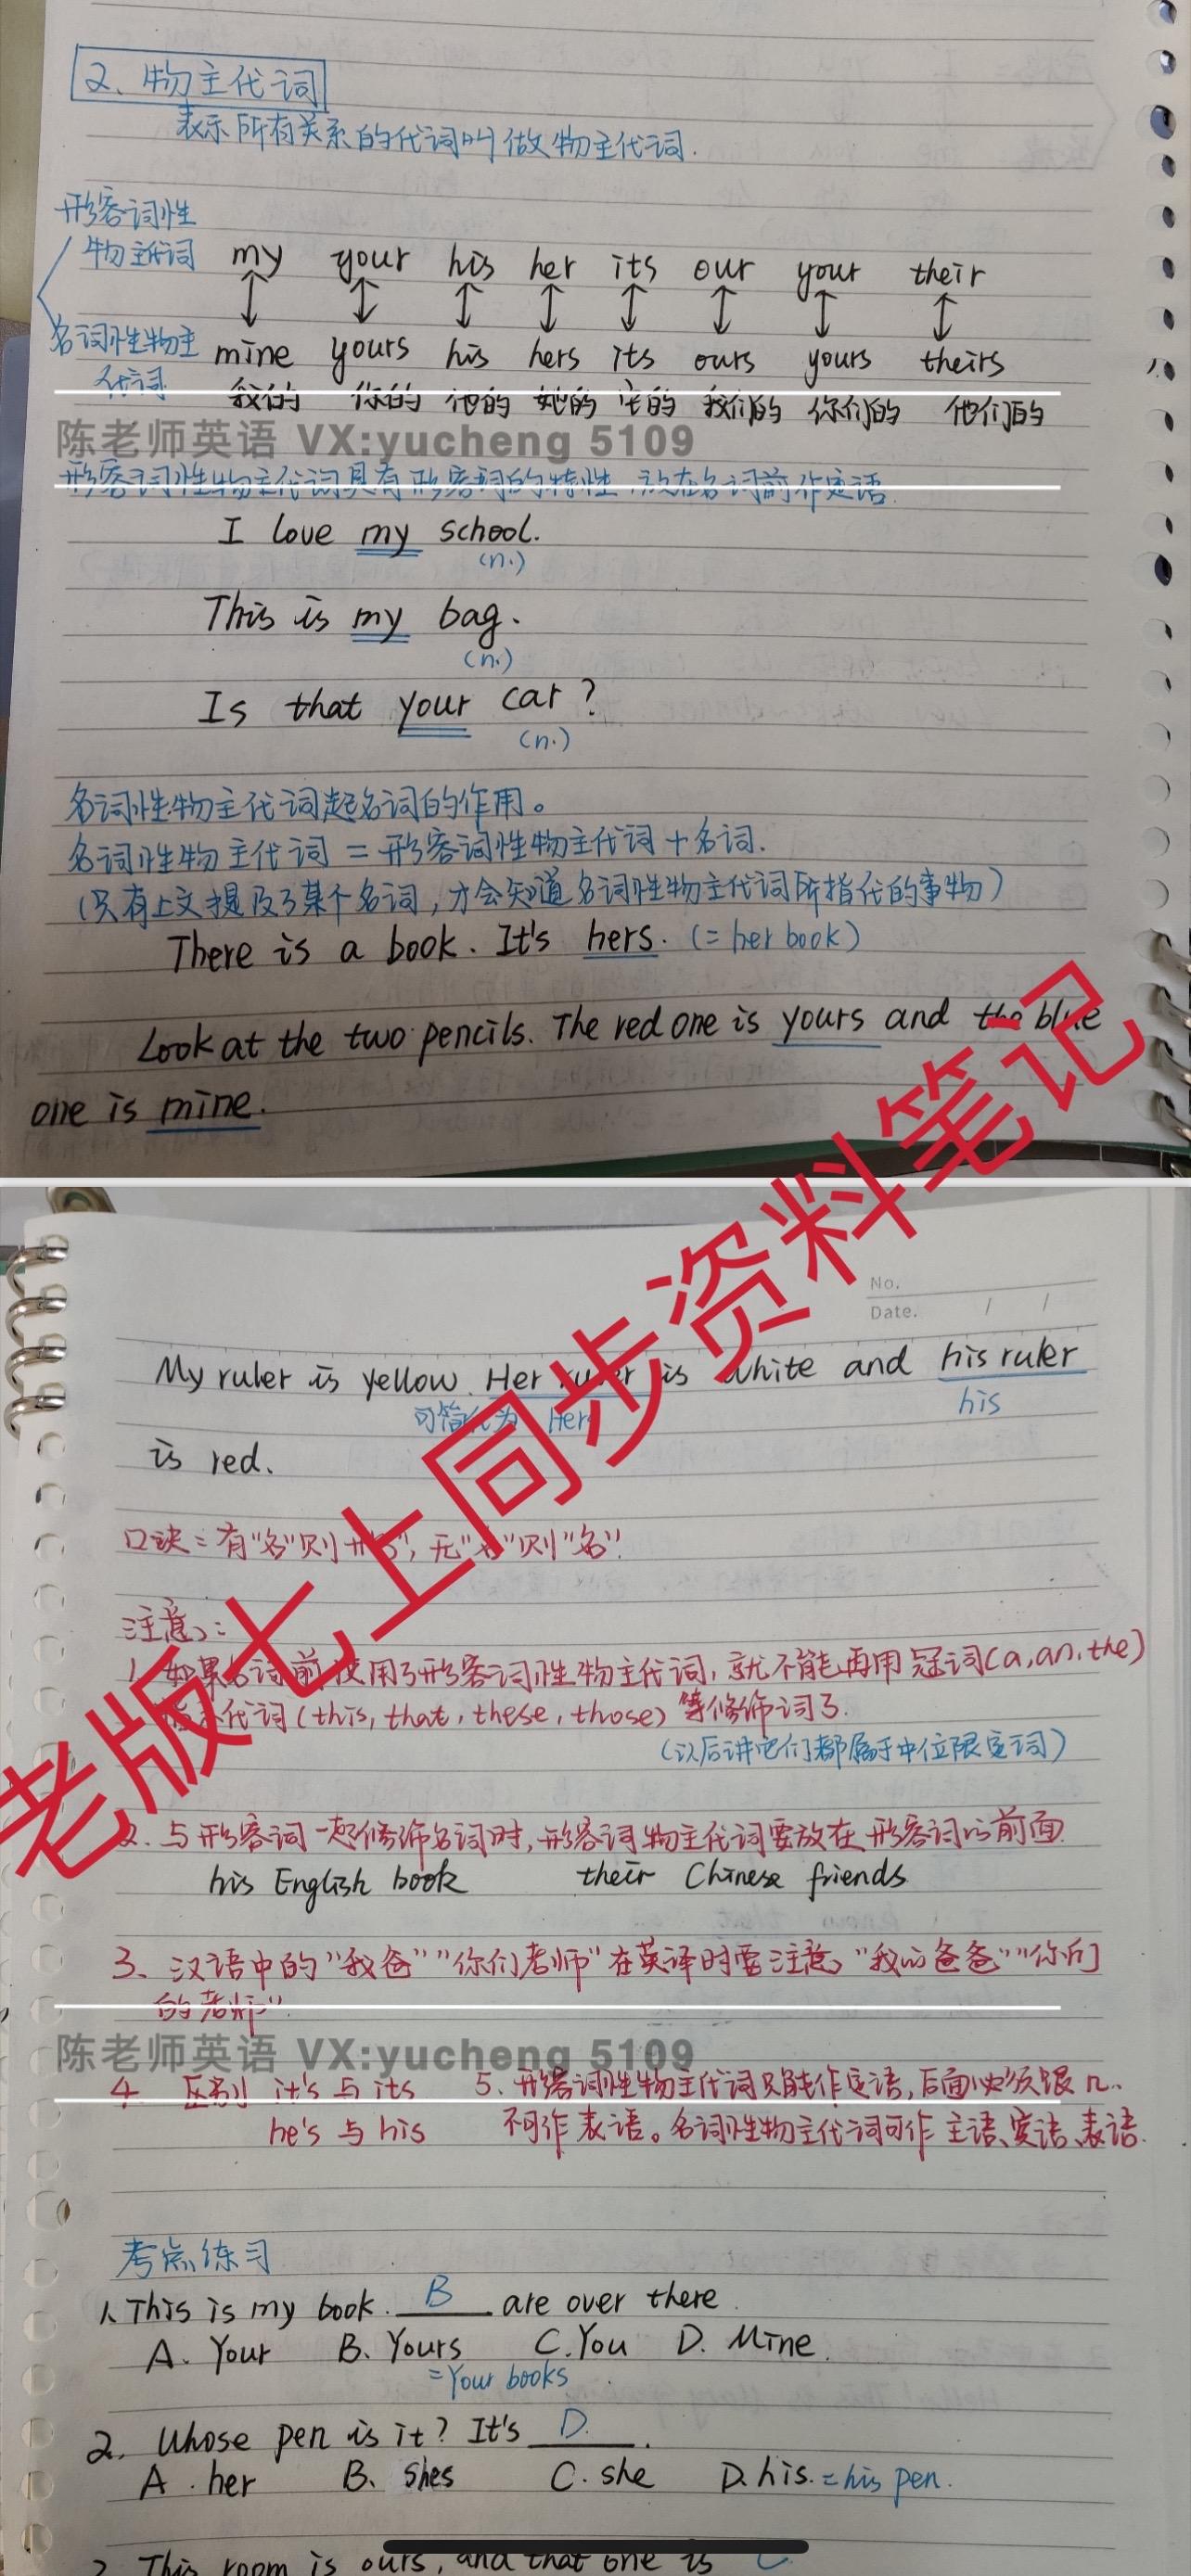 2、物主代词
表示所有关系的代词叫做物主代词.
形容词性
物主代词 my your his her its our your their
名词性物主 mine yours his hers its ours yours theirs
代词 我的 你的 他的 她的 它的 我们的 你们的 他们的
陈老师英语 VX:yucheng 5109
形容词性物主代词具有形容词的特性,放在名词前作定语.
I love my school.
(n.)
This is my bag.
(n.)
Is that your car?
(n.)
名词性物主代词起名词的作用。
名词性物主代词=形容词性物主代词+名词.
(只有上文提及了某个名词,才会知道名词性物主代词所指代的事物)
There is a book. It's hers. (= her book)
Look at the two pencils. The red one is yours and the blue
one is mine.
老版七上同步资料笔记
No.
Date. / /
My ruler is yellow. Her ruler is white and his ruler
可简化为 Hers his
is red.
口诀:有"名"则"形",无"名"则"名".
注意:
1. 如果名词前使用了形容词性物主代词,就不能再用冠词(a,an,the)
指示代词(this, that, these, those)等修饰词了.
(以后讲它们都属于中位限定词)
2. 与形容词一起修饰名词时,形容词物主代词要放在形容词的前面
his English book their Chinese friends
3、汉语中的"我爸""你们老师"在英译时要注意"我的爸爸""你们
的老师"
陈老师英语 VX:yucheng 5109
4. 区别 it's 与 its 5. 形容词性物主代词只能作定语,后面必须跟n.
he's 与 his 不可作表语。名词性物主代词可作主语、宾语、表语.
考点练习
1. This is my book. B are over there.
A. Your B. Yours C. You D. Mine.
=Your books
2. Whose pen is it? It's D.
A. her B. shes C. she D. his. = his pen.
3 This room is ours, and that one is C